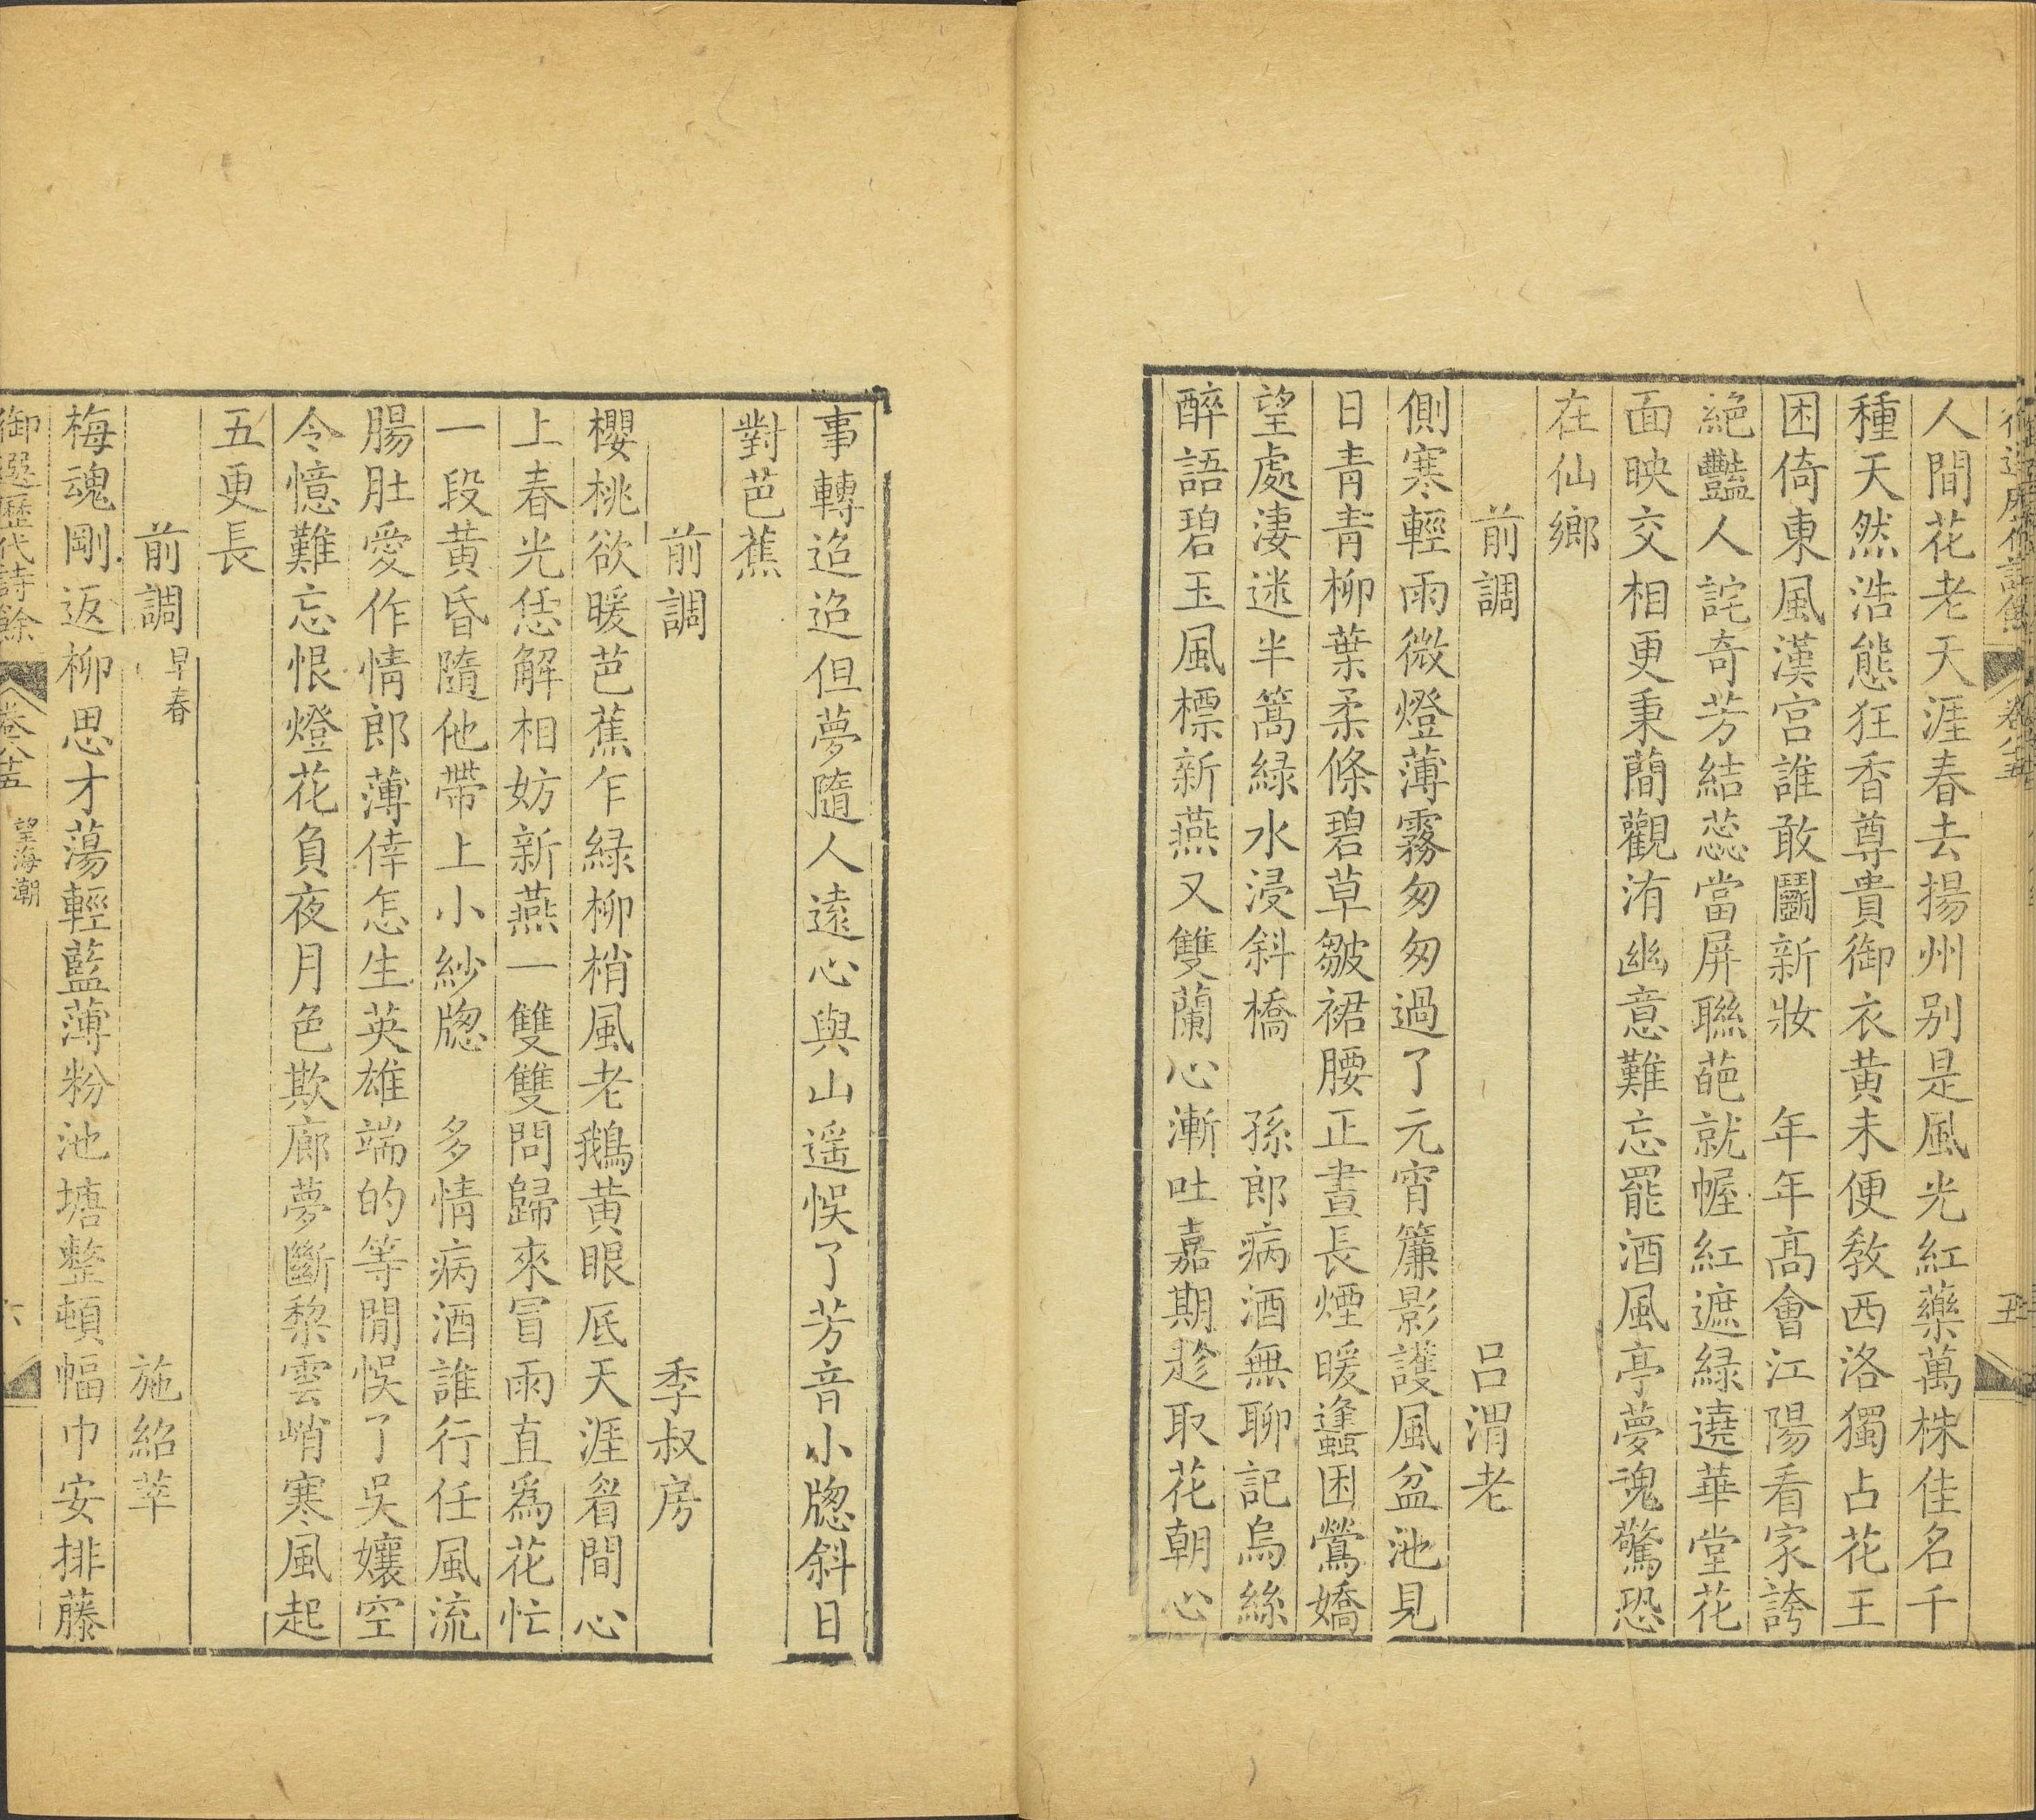 人間花老天涯春去揚州别是風光紅藥萬株佳名千
種天然浩態狂香尊貴御衣黄未便教西洛獨占花王
困倚東風漢宫誰敢鬭新妝　年年髙㑹江陽看家誇
絶豔人詫奇芳結蕊當屏聯葩就幄紅遮緑遶華堂花
面映交相更秉蕳觀洧幽意難忘罷酒風亭夢魂驚恐
在仙鄉
前調　吕渭老
側寒輕雨微燈薄霧匆匆過了元宵簾影護風盆池見
日青青柳葉柔條碧草皺裙腰正晝長煙暖蜂困鶯嬌
望處淒迷半篙緑水浸斜橋　孫郎病酒無聊記烏絲
醉語碧玉風標新燕又雙蘭心漸吐嘉期趁取花朝心
事轉迢迢但夢隨人遠心與山遥悞了芳音小牕斜日
對芭蕉
前調　季叔房
櫻桃欲暖芭蕉乍緑柳梢風老鵝黄眼底天涯眉間心
上春光恁解相妨新燕一雙雙問歸來冒雨直爲花忙
一段黄昏隨他帶上小紗牕　多情病酒誰行任風流
腸肚愛作情郎薄倖怎生英雄端的等閒悞了吳孃空
令憶難忘恨燈花負夜月色欺廊夢斷棃雲峭寒風起
五更長
前調　早春　施紹莘
梅魂剛返柳思才蕩輕藍薄粉池塘整頓幅巾安排藤
御選歷代詩餘　卷八十五　望海潮　六